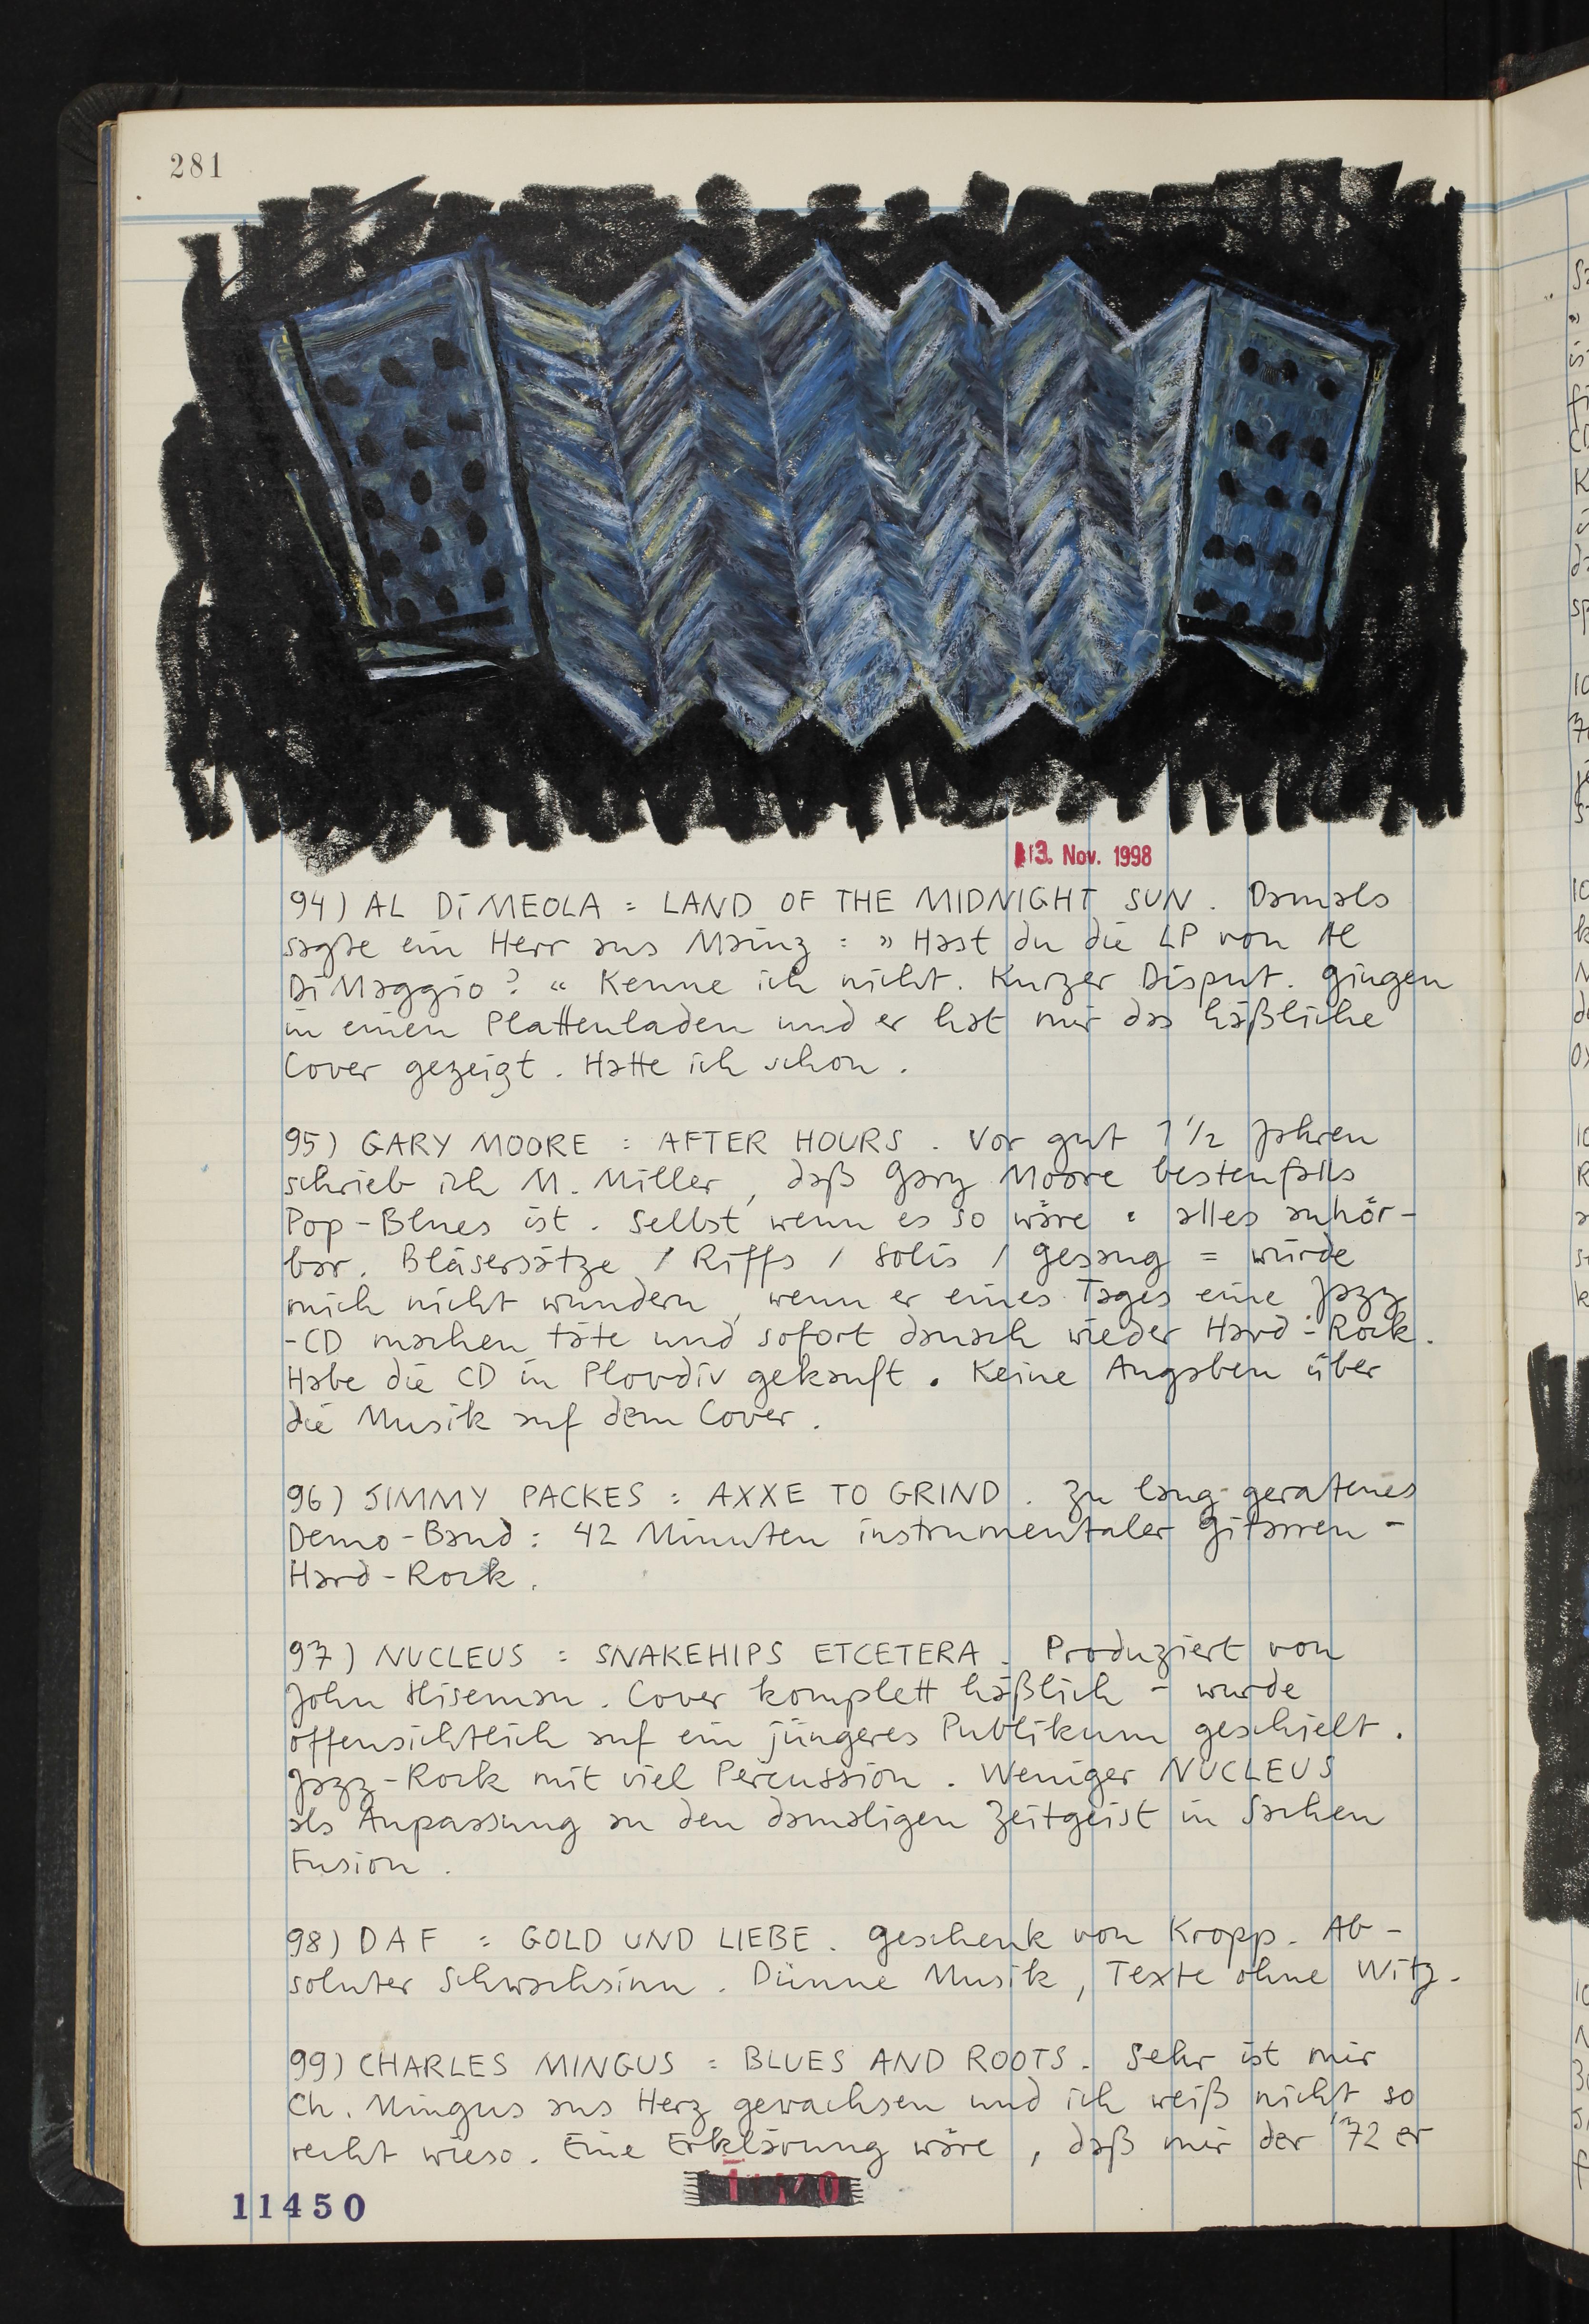 281
13. Nov. 1998
94) AL DiMEOLA = LAND OF THE MIDNIGHT SUN. Damals
sagte ein Herr aus Mainz : » Hast du die LP von Al
DiMaggio? « Kenne ich nicht. Kurzer Disput. Gingen
in einen Plattenladen und er hat mir das häßliche
Cover gezeigt. Hatte ich schon.
95) GARY MOORE : AFTER HOURS. Vor gut 1 1/2 Jahren
schrieb ich M. Miller, daß Gary Moore bestenfalls
Pop-Blues ist. Selbst wenn es so wäre : alles anhör-
bar. Bläsersätze / Riffs / Solis / Gesang = würde
mich nicht wundern, wenn er eines Tages eine Jazz
-CD machen täte und sofort danach wieder Hard-Rock.
Habe die CD in Plovdiv gekauft. Keine Angaben über
die Musik auf dem Cover.
96) JIMMY PACKES : AXXE TO GRIND. Zu lang geratenes
Demo-Band : 42 Minuten instrumentaler Gitarren-
Hard-Rock.
97) NUCLEUS : SNAKEHIPS ETCETERA. Produziert von
John Hiseman. Cover komplett häßlich - wurde
offensichtlich auf ein jüngeres Publikum geschielt.
Jazz-Rock mit viel Percussion. Weniger NUCLEUS
als Anpassung an den damaligen Zeitgeist in Sachen
Fusion.
98) DAF : GOLD UND LIEBE. Geschenk von Kropp. Ab-
soluter Schwachsinn. Dünne Musik, Texte ohne Witz.
99) CHARLES MINGUS : BLUES AND ROOTS. Sehr ist mir
Ch. Mingus ans Herz gewachsen und ich weiß nicht so
recht wieso. Eine Erklärung wäre, daß mir der '72 er
11450